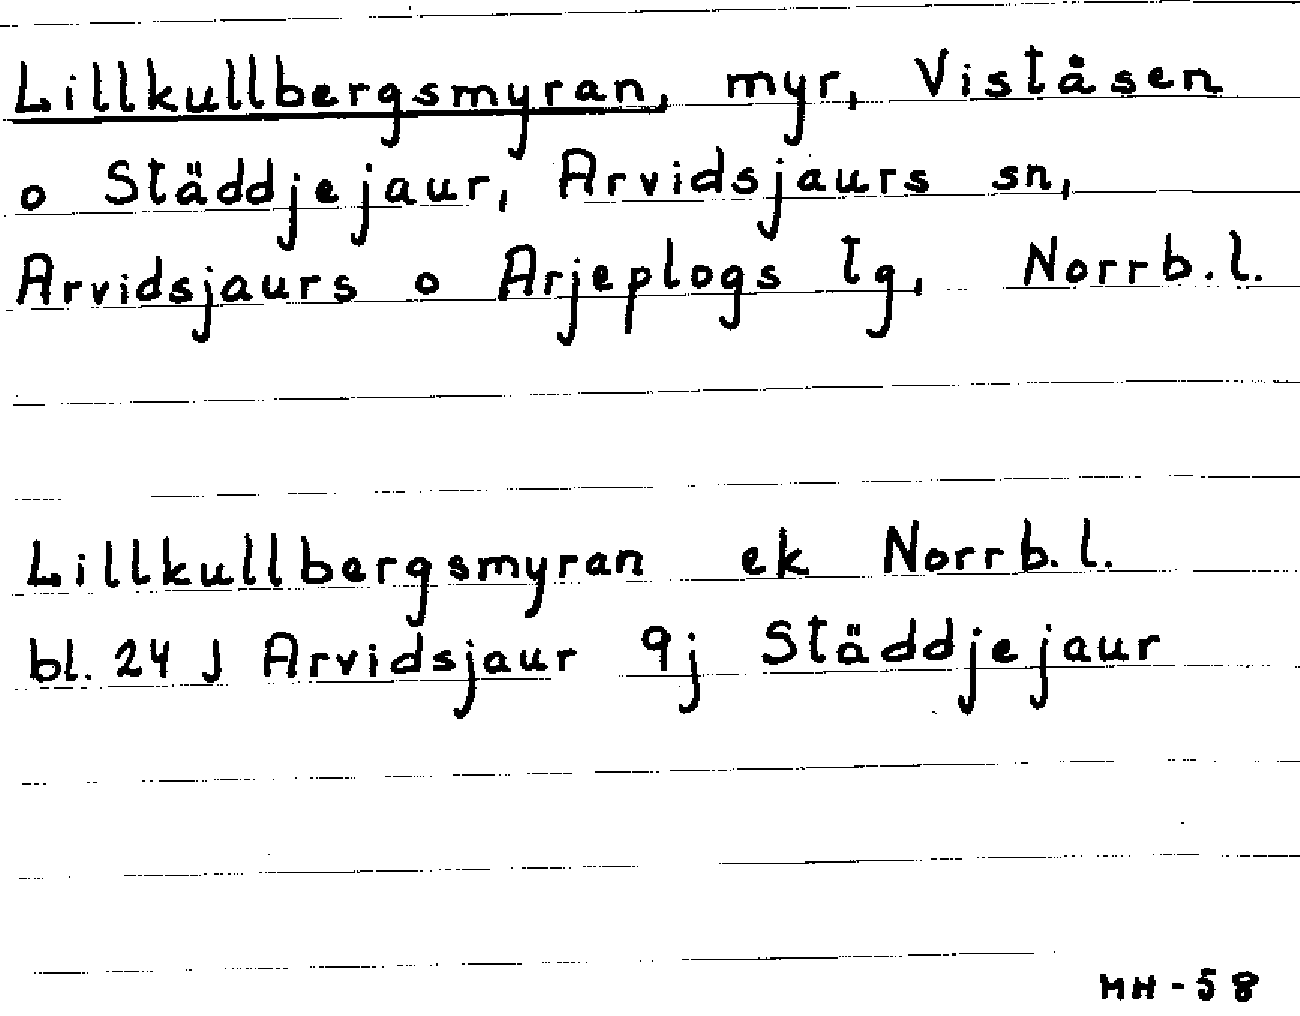 Lillkullbergsmyran, myr, Viståsen
o Städdjejaur, Arvidsjaurs sn,
Arvidsjaurs o Arjeplogs lg, Norrb.l.
Lillkullbergsmyran ek Norrb.l.
bl. 24 J Arvidsjaur 9j Städdjejaur
MH-58